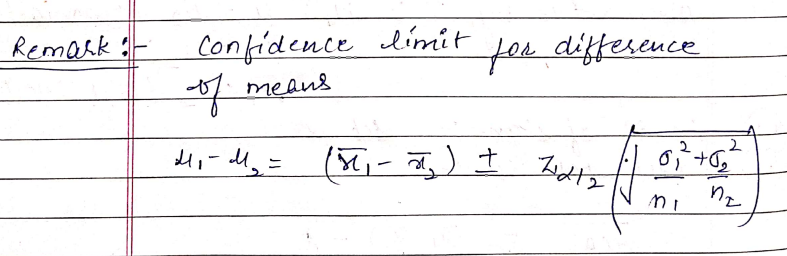 Remark :- Confidence limit for difference
of means
μ₁ - μ₂ = (x̄₁ - x̄₂) ± Z_{α/2} (√(σ₁²/n₁ + σ₂²/n₂))